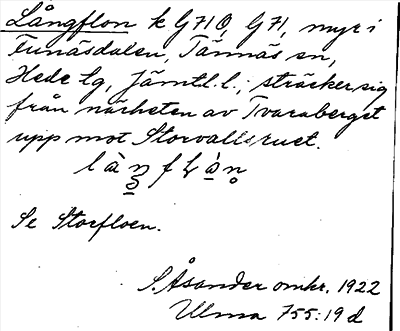 Långflon k G71Ö, G71, myr i
Funäsdalen, Tännäs sn,
Hede tg, Jämtl. l.; sträcker sig
från närheten av Tvaraberget
upp mot Storvallsruet.
Se Storfloen.
S. Åsander omkr. 1922
Ulma 755:19 d